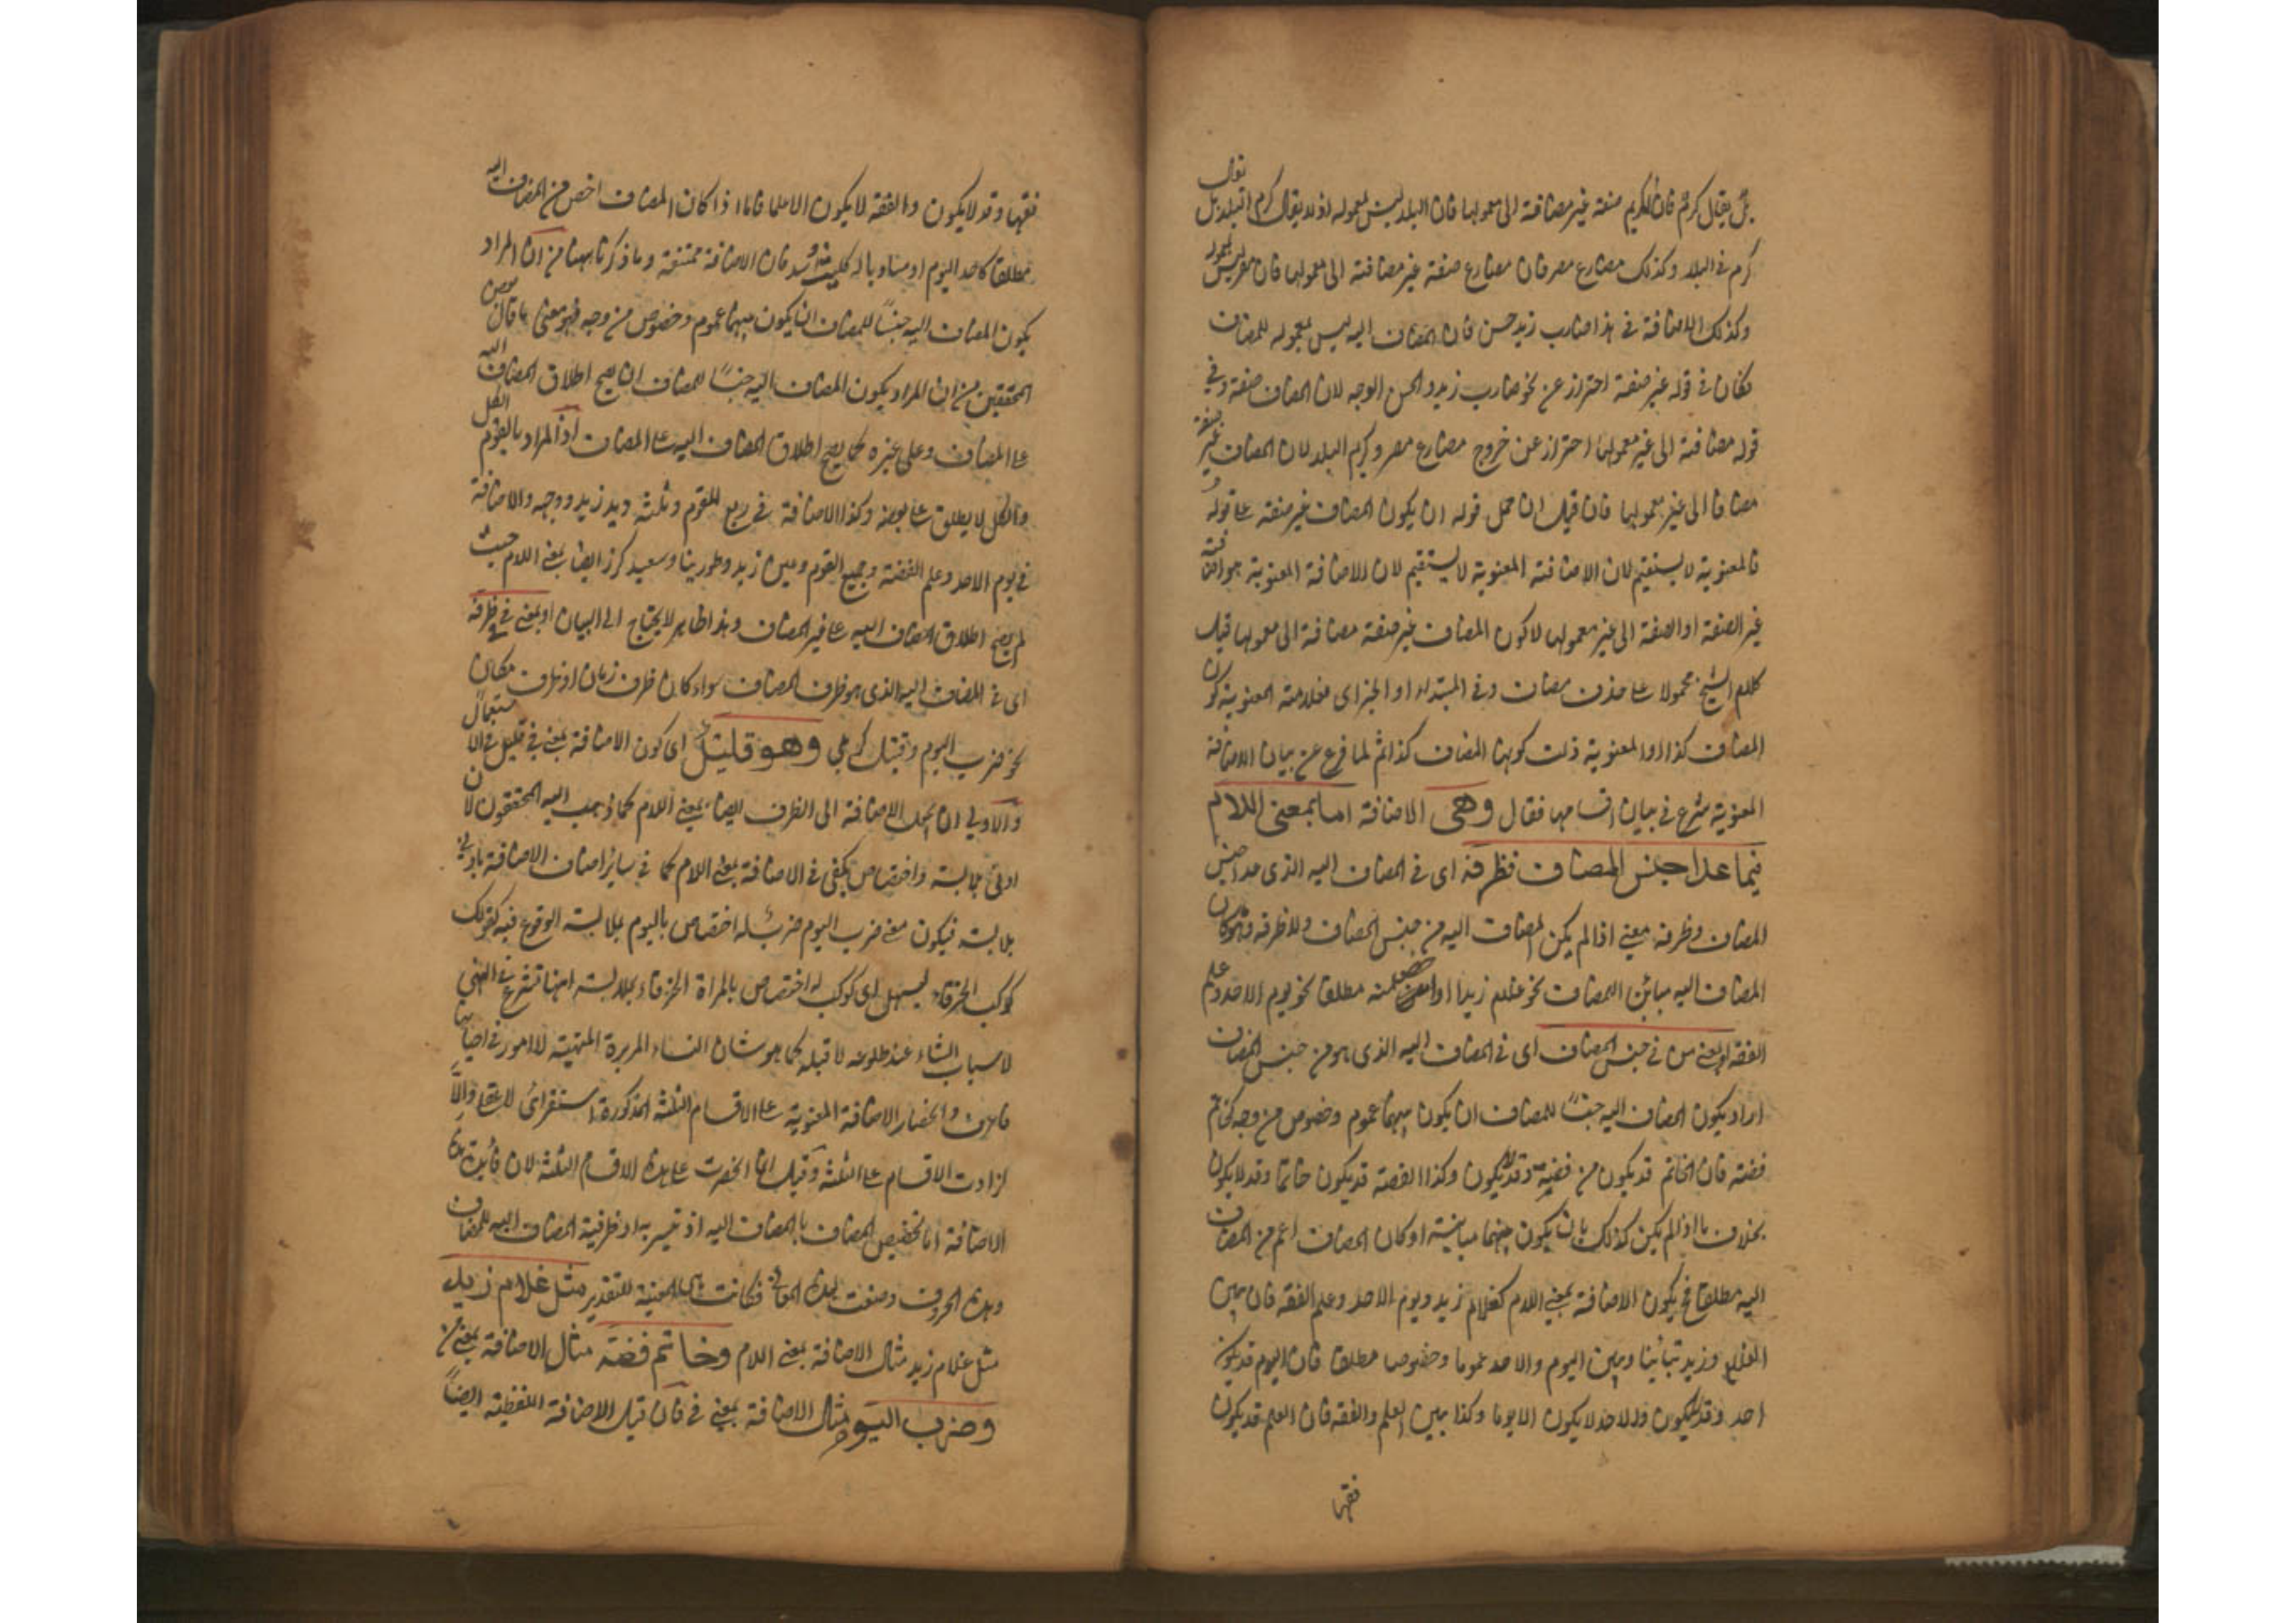 بل يقال كرم فان الكريم صفة غير مضافة الى معمولها فان البلد ليس معموله اذ لا يقال كرم البلد بل يقال
كرم فى البلد وكذلك مصارع مصر فان مصارع صفة غير مضافة الى معمولها فان مصر ليس بمعموله
وكذلك الاضافة فى هذا ضارب زيد حسن فان المضاف اليه ليس بمعموله للمضاف
فكان فى قوله غير صفة احتراز عن نحو ضارب زيد والحسن الوجه لان المضاف صفة وفى
قوله مضافة الى غير معمولها احتراز عن خروج مصارع مصر وكريم البلد لان المضاف غير صفة
مضافا الى غير معمولها فان قيل ان حمل قوله ان يكون المضاف غير صفة على قوله
فالمعنوية لا يستقيم لان الاضافة المعنوية لا يستقيم لان الاضافة المعنوية هو اضافة
غير الصفة او الصفة الى غير معمولها لا كون المضاف غير صفة مضافة الى معمولها قيل
كلام الشيخ محمولا على حذف مضاف وفى المبتداء او الخبر اى فعلامة المعنوية كون
المضاف كذا او المعنوية ذات كونها المضاف كذا ثم لما فرغ عن بيان الاضافة
المعنوية شرع فى بيان اقسامها فقال وهى الاضافة اما بمعنى اللام
فيما عدا جنس المضاف وظرفه اى فى المضاف اليه الذى عدا جنس
المضاف وظرفه يعنى اذا لم يكن المضاف اليه من جنس المضاف ولا ظرفه وكان
المضاف اليه مباين المضاف نحو غلام زيد او اخص منه مطلقا نحو يوم الاحد وعلم
الفقه او بمعنى من فى جنس المضاف اى فى المضاف اليه الذى هو من جنس المضاف
اراد بكون المضاف اليه جنسا للمضاف ان يكون بينهما عموم وخصوص من وجه كخاتم
فضة فان الخاتم قد يكون من فضة وقد لا يكون وكذا الفضة قد يكون خاتما وقد لا يكون
بخلاف ما اذا لم يكن كذلك بان يكون بينهما مباينة او كان المضاف اعم من المضاف
اليه مطلقا فح يكون الاضافة بمعنى اللام كغلام زيد ويوم الاحد وعلم الفقه فان بين
الغلام وزيد تباينا وبين اليوم والاحد عموما وخصوصا مطلقا فان اليوم قد يكون
احد وقد لا يكون والاحد لا يكون الا يوما وكذا بين العلم والفقه فان العلم قد يكون
فقها
فقها وقد لا يكون والفقه لا يكون الا علما فاما اذا كان المضاف اخص من المضاف اليه
مطلقا كاحد اليوم او مساويا له كليث اسد فان الاضافة ممتنعة وما ذكرنا ههنا من ان المراد
بكون المضاف اليه جنسا للمضاف ان يكون بينهما عموم وخصوص من وجه فهو معنى ما قال بعض
المحققين من ان المراد بكون المضاف اليه جنسا للمضاف ان يصح اطلاق المضاف اليه
على المضاف وعلى غيره كما يصح اطلاق المضاف اليه على المضاف اذ المراد بالقوم الكل
والكل لا يطلق على بعضه وكذا الاضافة فى ربع القوم وثلثه ويد زيد ووجهه والاضافة
فى يوم الاحد وعلم الفقه وجميع القوم وعين زيد وطور سينا وسعيد كرز ايضا بمعنى اللام حيث
لم يصح اطلاق المضاف اليه على غير المضاف وهذا ظاهر لا يحتاج الى البيان او بمعنى فى فى ظرفه
اى فى المضاف اليه الذى هو ظرف المضاف سواء كان ظرف زمان او ظرف مكان
نحو ضرب اليوم وقتيل كربلا وهو قليل اى كون الاضافة بمعنى فى قليل فى الاستعمال
والاولى ان يجعل الاضافة الى الظرف ايضا بمعنى اللام كما ذهب اليه المحققون لان
ادنى ملابسة واختصاص يكفى فى الاضافة بمعنى اللام كما فى سائر اضاف الاضافة بادنى
ملابسة فيكون معنى ضرب اليوم ضرب له اختصاص باليوم بملابسة الوقوع فيه كقولك
كوكب الخرقاء لسهيل اى كوكب له اختصاص بالمراة الخرقاء بملابسة انها تشرع فى التهى
لاسباب الشتاء عند طلوعه لا قبله كما هو شان النساء المدبرة المهيئة للامور فى احيانها
فاعرف وانحصار الاضافة المعنوية على الاقسام الثلثة المذكورة استقرائى لا عقلى والا
لزادت الاقسام على الثلثة وقيل انما انحصرت على هذه الاقسام الثلثة لان فائدة هذه
الاضافة اما تخصيص المضاف بالمضاف اليه او تفسيره به او ظرفية المضاف اليه للمضاف
وهذه الحروف وضعت لهذه المعانى فكانت هى المعينة للتقدير مثل غلام زيد
مثل غلام زيد مثال الاضافة بمعنى اللام وخاتم فضة مثال الاضافة بمعنى من
وضرب اليوم مثال الاضافة بمعنى فى فان قيل الاضافة اللفظية ايضا